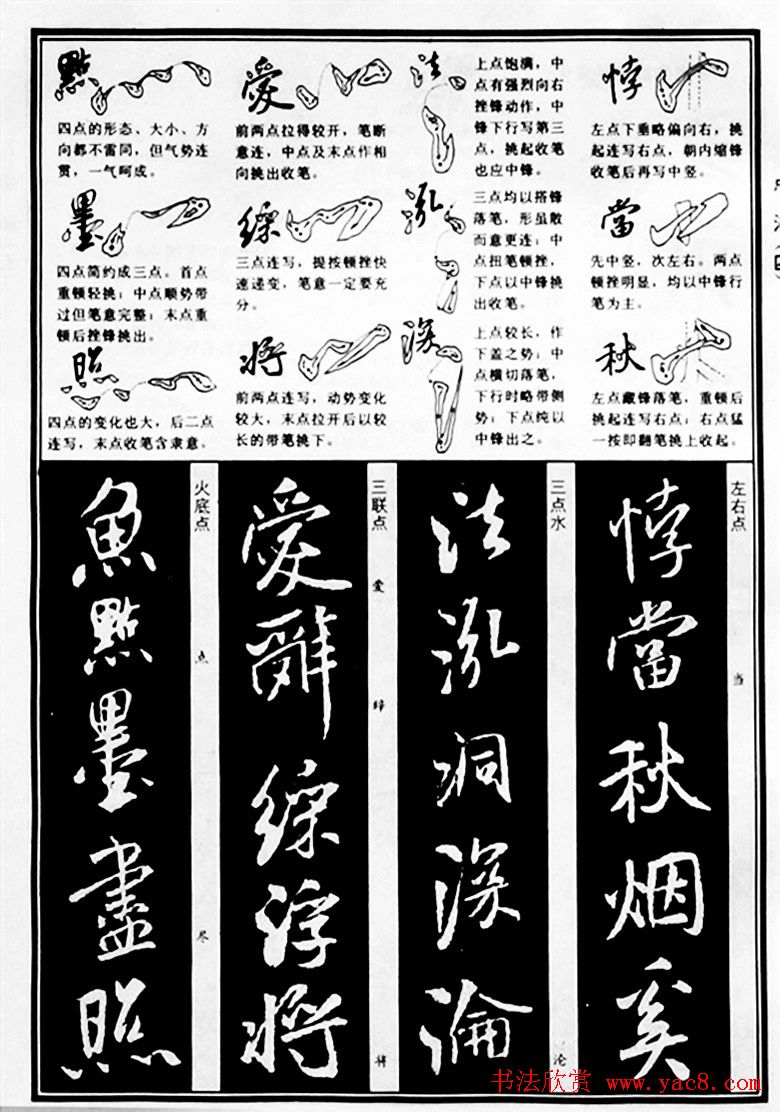 點
四点的形态、大小、方
向都不雷同，但气势连
贯，一气呵成。
墨
四点简约成三点。首点
重顿轻挑；中点顺势带
过但笔意完整；末点重
顿后挫锋挑出。
照
四点的变化也大，后二点
连写，末点收笔含隶意。
愛
前两点拉得较开，笔断
意连，中点及末点作相
向挑出收笔。
三点连写，提按顿挫快
速递变，笔意一定要充
分。
将
前两点连写，动势变化
较大，末点拉开后以较
长的带笔挑下。
法
上点饱满，中
点有强烈向右
挫锋动作，中
锋下行写第三
点，挑起收笔
也应中锋。
泓
三点均以搭锋
落笔，形虽散
而意更连；中
点扭笔顿挫，
下点以中锋挑
出收笔。
深
上点较长，作
下盖之势；中
点横切落笔，
下行时略带侧
势；下点纯以
中锋出之。
悖
左点下垂略偏向右，挑
起连写右点，朝内缩锋
收笔后再写中竖。
當
先中竖，次左右。两点
顿挫明显，均以中锋行
笔为主。
秋
左点藏锋落笔，重顿后
挑起连写右点；右点猛
一按即翻笔挑上收起。
左右点
悖當秋烟奚
当
三点水
法泓洞深淪
沦
三联点
愛
浮将
爱
缔
将
火底点
魚點墨盡照
点
尽
书法欣赏 www.yac8.com